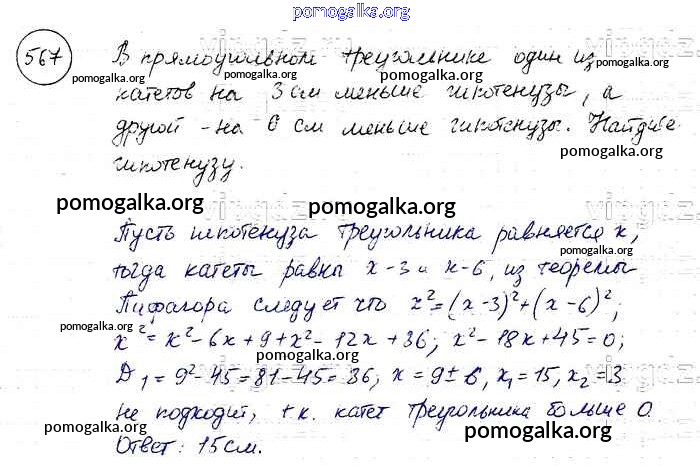 pomogalka.org
567 В прямоугольном треугольнике один из
pomogalka.org pomogalka.org pomogalka.org
катетов на 3 см меньше гипотенузы, а
другой - на 6 см меньше гипотенузы. Найдите
pomogalka.org
гипотенузу.
pomogalka.org
pomogalka.org pomogalka.org
Пусть гипотенуза треугольника равняется x,
pomogalka.org
тогда катеты равны x-3 и x-6, из теоремы
Пифагора следует что x²=(x-3)²+(x-6)²;
pomogalka.org
x²=x²-6x+9+x²-12x+36; x²-18x+45=0;
pomogalka.org
D₁=9²-45=81-45=36; x=9±6, x₁=15, x₂=3
не подходит, т.к. катет треугольника больше 0.
pomogalka.org pomogalka.org pomogalka.org
Ответ: 15см.